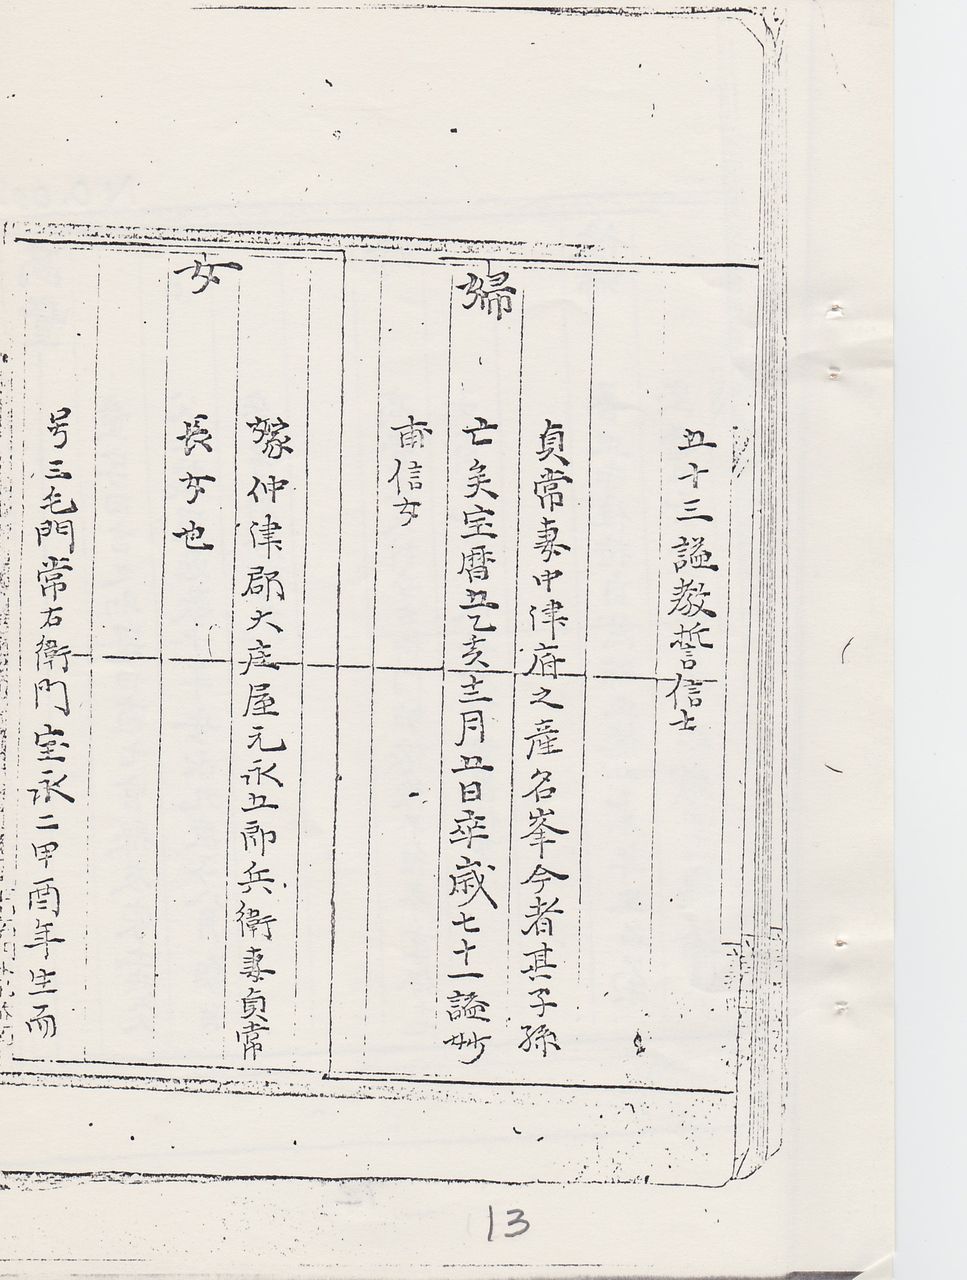 五十三謚教誓信士
婦
貞常妻中津府之産名峯今者其子孫
亡矣宝暦五乙亥十二月五日卒歳七十一謚妙
甫信女
女
嫁仲津郡大庭屋元永五郎兵衛妻貞常
長女也
号三毛門常右衛門宝永二甲酉年生而
13